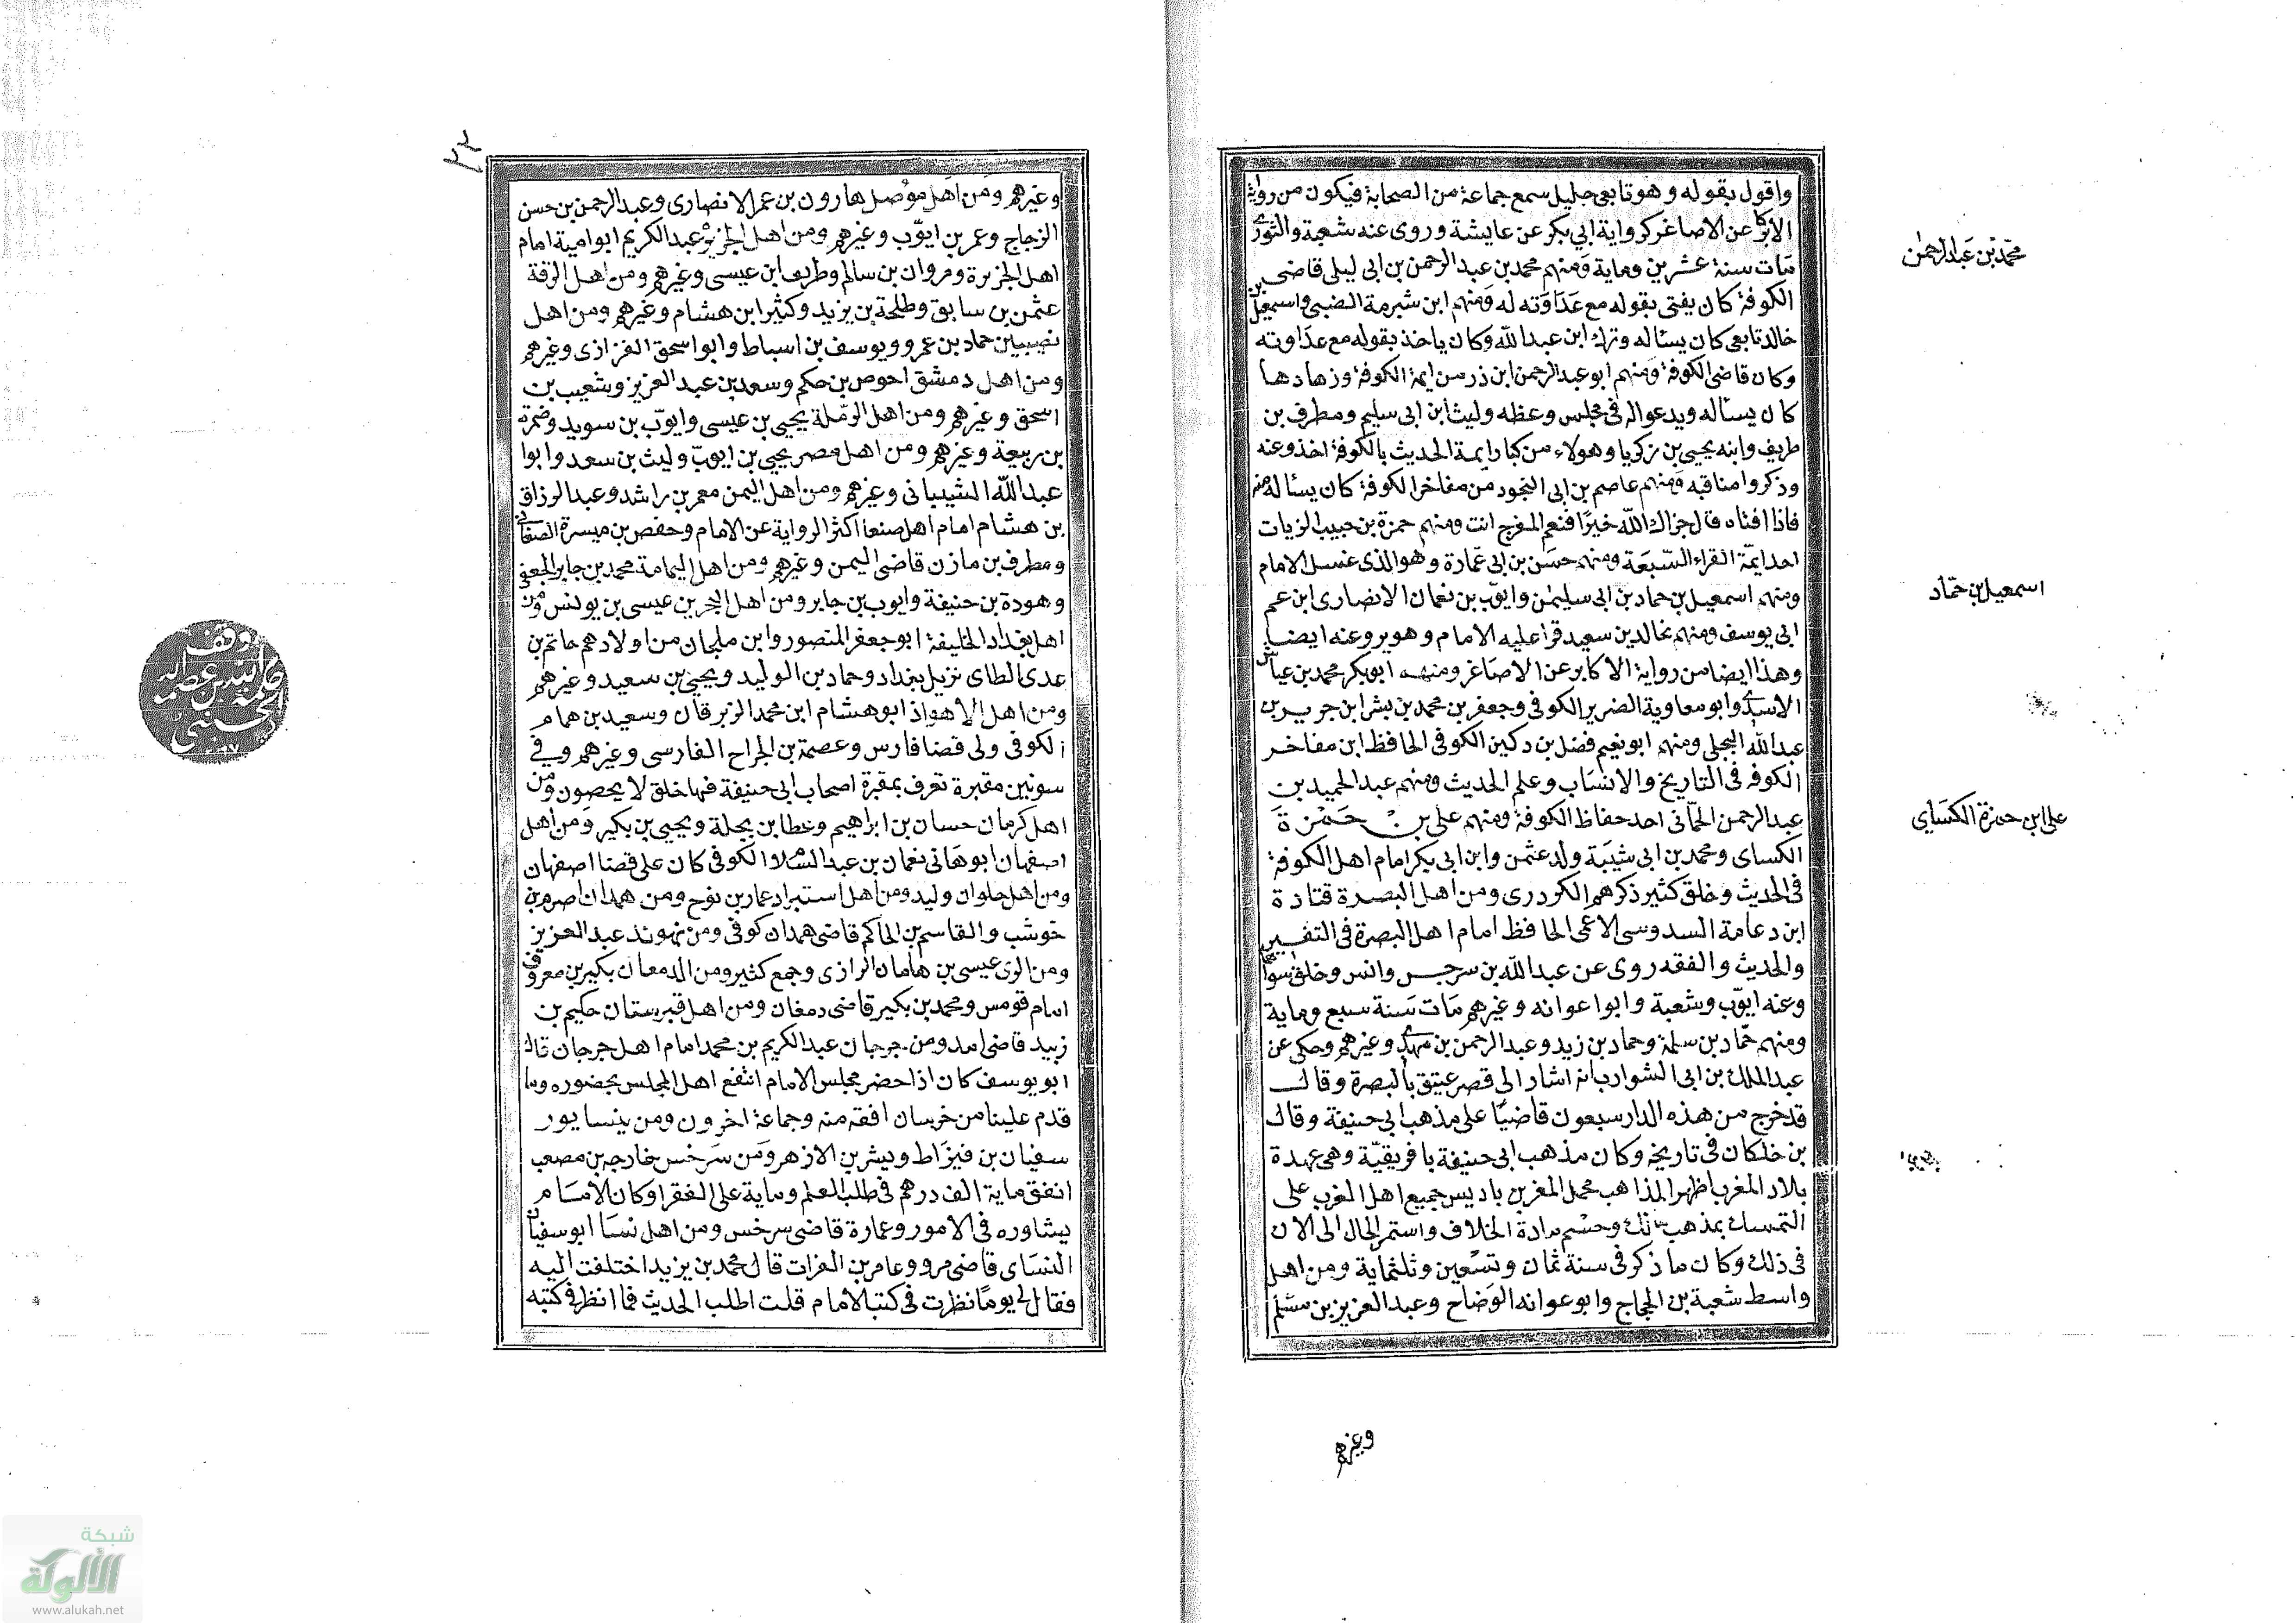 واقول بقوله وهو تابعى جليل سمع جماعة من الصحابة فيكون من رواية
الاكابر عن الاصاغر كرواية ابي بكر عن عايشة وروى عنه شعبة والثورى
مات سنة عشرين وماية ومنهم محمد بن عبد الرحمن بن ابى ليلى قاضى
الكوفة كان يفتى بقوله مع عداوته له ومنهم ابن شبرمة الضبى واسمعيل بن
خالد تابعى كان يسأله وترك ابن عبد الله وكان ياخذ بقوله مع عداوته
وكان قاضى الكوفة ومنهم ابو عبد الرحمن ابن ذر من ايمة الكوفة وزهادها
كان يسأله ويدعو اله فى مجلس وعظه وليث ابن ابى سليم ومطرف بن
طريف وابنه يحيى بن زكريا وهولاء من كبار ايمة الحديث بالكوفة اخذو عنه
وذكروا مناقبه ومنهم عاصم بن ابى النجود من مفاخر الكوفة كان يسأله منه
فاذا افتاه قال جزاك الله خيرا فنعم المفرج انت ومنهم حمزة بن حبيب الزيات
احد ايمّة القراء السّبعة ومنهم حسن بن ابى عمارة وهو الذى غسل الامام
ومنهم اسمعيل بن حماد بن ابى سليمن وايوّب بن نعمان الانصارى ابن عم
ابى يوسف ومنهم خالد بن سعيد قرا عليه الامام وهو يروعنه ايضا
وهذا ايضا من رواية الاكابر عن الاصاغر ومنهم ابو بكر محمد بن عياش
الاسدى وابو معاوية الضرير الكوفى وجعفر بن محمد بن بشر ابن جرير بن
عبد الله البجلى ومنهم ابو نعيم فضل بن دكين الكوفى الحافظ ابن مفاخر
الكوفه فى التاريخ والانساب وعلم الحديث ومنهم عبد الحميد بن
عبد الرحمن الحمّانى احد حفاظ الكوفة ومنهم على بن حمزة
الكساى ومحمد بن ابى شيبة ولد عثمن وابن ابى بكر امام اهل الكوفة
فى الحديث وخلق كثير ذكرهم الكردرى ومن اهل البصرة قتادة
ابن دعامة السدوسى الاعمى الحافظ امام اهل البصرة فى التفسير
والحديث والفقه روى عن عبد الله بن سرجس وانس وخلق سواهما
وعنه ايوّب وشعبة وابوا عوانه وغيرهم مات سنة سبع وماية
ومنهم حمّاد بن سلمة وحماد بن زيد وعبد الرحمن بن مهدى وغيرهم وحكى عن
عبد الملك بن ابى الشوارب انه اشار الى قصر عتيق بالبصرة وقال
قد خرج من هذه الدار سبعون قاضيا على مذهب ابى حنيفة وقال
بن خلكان فى تاريخه وكان مذهب ابى حنيفة بافريقيّة وهى عهدة
بلاد المغرب اظهر المذاهب فحمل المغز بن باديس جميع اهل المغرب على
التمسك بمذهب مالك وحسم مادة الخلاف واستمر الحال الى الان
فى ذلك وكان ما ذكر فى سنة ثمان وتسعين وثلثماية ومن اهل
واسط شعبة بن الحجاج وابو عوانه الوضاح وعبد العزيز بن مسلم
وغيرهم
محمد بن عبد الرحمن
اسمعيل بن حمّاد
على ابن حمزة الكساى
٢٢
وغيرهم ومن اهل موصل هارون بن عمر الانصارى وعبد الرحمن بن حسن
الزجاج وعمر بن ايوّب وغيرهم ومن اهل الجزيرة عبد الكريم ابو امية امام
اهل الجزيرة ومروان بن سالم وطريف ابن عيسى وغيرهم ومن اهل الرقة
عثمن بن سابق وطلحة بن يزيد وكثير ابن هشام وغيرهم ومن اهل
نصيبين حماد بن عمرو ويوسف بن اسباط وابو اسحق الفزازى وغيرهم
ومن اهل دمشق احوص بن حكم وسعد بن عبد العزيز وشعيب بن
اسحق وغيرهم ومن اهل الرّملة يحيى بن عيسى وايوّب بن سويد وضمرة
بن ربيعة وغيرهم ومن اهل مصر يحيى بن ايوبّ وليث بن سعد وابوا
عبد الله الشيبانى وغيرهم ومن اهل اليمن معمر بن راشد وعبد الرزاق
بن هشام امام اهل صنعا اكثر الرواية عن الامام وحفص بن ميسرة الصنعانى
ومطرف بن مازن قاضى اليمن وغيرهم ومن اهل اليمامة محمد بن جابر الجعفى
وهودة بن حنيفة وايوب بن جابر ومن اهل البحرين عيسى بن يونس ومن
اهل بغداد الخليفة ابو جعفر المنصور وابن ملجان من اولادهم حاتم بن
عدى الطاى نزيل بغداد وحماد بن الوليد ويحيى بن سعيد وغيرهم
ومن اهل الاهواذ ابو هشام ابن محمد الزبرقان وسعيد بن همام
الكوفى ولى قضا فارس وعصمة بن الجراح الفارسى وغيرهم وفى
سونين مقبرة تعرف بمقبرة اصحاب ابى حنيفة فيها خلق لا يحصون ومن
اهل كرمان حسان بن ابراهيم وعطا بن بجلة ويحيى بن بكير ومن اهل
اصفهان ابو هانى نعمان بن عبد السلام الكوفى كان على قضا اصفهان
ومن اهل حلوان وليد ومن اهل استبراد عمار بن نوح ومن همدان اصرم بن
خوشب والقاسم بن الحاكم قاضى همدان كوفى ومن نهوند عبد العزيز
ومن الرى عيسى بن هامان الرازى وجمع كثير ومن الدمعان بكير بن معروف
امام قومس ومحمد بن بكير قاضى دمغان ومن اهل قبرستان حكيم بن
زبيد قاضى امد ومن جرجان عبد الكريم بن محمد امام اهل جرجان قال
ابو يوسف كان اذا حضر مجلس الامام انتفع اهل المجلس بحضوره وما
قدم علينا من خرسان افقه منه وجماعة اخرون ومن بنسايور
سفيان بن قيراط وبشر بن الازهر ومن سرخس خارجه بن مصعب
انفق ماية الف درهم فى طلب العلم وماية على الفقرا وكان الامام
يشاوره فى الامور وعمارة قاضى سرخس ومن اهل نسا ابو سفيان
النساى قاضى مرو وعامر بن الفرات قال محمد بن يزيد اختلفت اليه
فقال لى يوما نظرت فى كتب الامام قلت اطلب الحديث فما انظر فى كتبه
شبكة
الألوكة
www.alukah.net